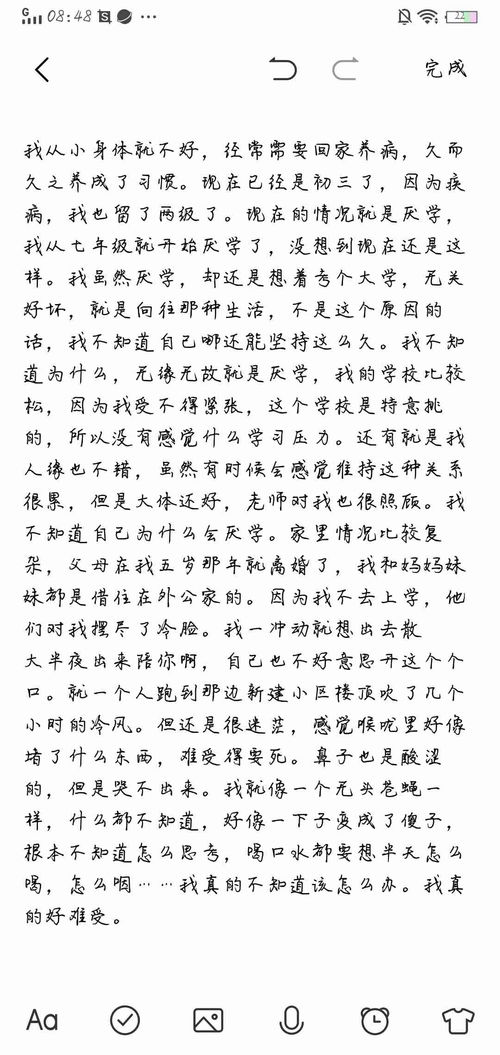 08:48 ...
22
完成
我从小身体就不好，经常需要回家养病，久而
久之养成了习惯。现在已经是初三了，因为疾
病，我也留了两级了。现在的情况就是厌学，
我从七年级就开始厌学了，没想到现在还是这
样。我虽然厌学，却还是想着考个大学，无关
好坏，就是向往那种生活，不是这个原因的
话，我不知道自己哪还能坚持这么久。我不知
道为什么，无缘无故就是厌学，我的学校比较
松，因为我受不得紧张，这个学校是特意挑
的，所以没有感觉什么学习压力。还有就是我
人缘也不错，虽然有时候会感觉维持这种关系
很累，但是大体还好，老师对我也很照顾。我
不知道自己为什么会厌学。家里情况比较复
杂，父母在我五岁那年就离婚了，我和妈妈妹
妹都是借住在外公家的。因为我不去上学，他
们对我摆尽了冷脸。我一冲动就想出去散
大半夜出来陪你啊，自己也不好意思开这个个
口。就一个人跑到那边新建小区楼顶吹了几个
小时的冷风。但还是很迷茫，感觉喉咙里好像
堵了什么东西，难受得要死。鼻子也是酸涩
的，但是哭不出来。我就像一个无头苍蝇一
样，什么都不知道，好像一下子变成了傻子，
根本不知道怎么思考，喝口水都要想半天怎么
喝，怎么咽……我真的不知道该怎么办。我真
的好难受。
Aa